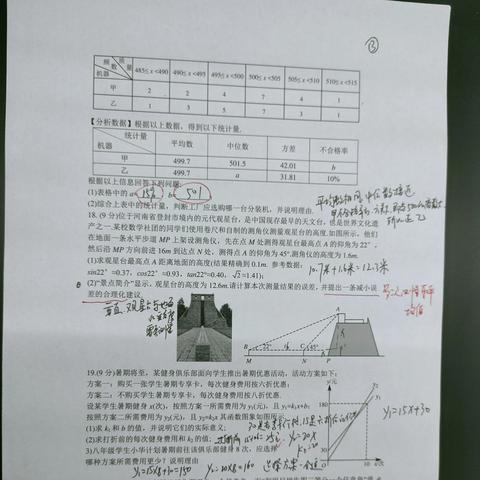 ③
频数 质量 机器 485≤x<490 490≤x<495 495≤x<500 500≤x<505 505≤x<510 510≤x<515
甲 2 2 4 7 4 1
乙 1 3 5 7 3 1
【分析数据】根据以上数据，得到以下统计量.
统计量 机器 平均数 中位数 方差 不合格率
甲 499.7 501.5 42.01 b
乙 499.7 a 31.81 10%
根据以上信息回答下列问题:
(1)表格中的a= 15% b= 501
(2)综合上表中的统计量，判断工厂应选购哪一台分装机，并说明理由.
18. (9 分)位于河南省登封市境内的元代观星台，是中国现存最早的天文台，也是世界文化遗
产之一.某校数学社团的同学们使用卷尺和自制的测角仪测量观星台的高度.如图所示，他们
在地面一条水平步道 MP 上架设测角仪，先在点 M 处测得观星台最高点 A 的仰角为 22°，
然后沿 MP 方向前进 16m 到达点 N 处，测得点 A 的仰角为 45°.测角仪的高度为 1.6m.
(1)求观星台最高点 A 距离地面的高度(结果精确到 0.1m. 参考数据: 10.7米+1.6米=12.3米
sin22°≈0.37，cos22°≈0.93，tan22°≈0.40，√2≈1.41);
(2)“景点简介”显示，观星台的高度为 12.6m.请计算本次测量结果的误差，并提出一条减小误
差的合理化建议.
A
B 22° 16 C 45°
M N P
19.(9 分)暑期将至，某健身俱乐部面向学生推出暑期优惠活动，活动方案如下:
方案一：购买一张学生暑期专享卡，每次健身费用按六折优惠;
方案二：不购买学生暑期专享卡，每次健身费用按八折优惠.
设某学生暑期健身 x(次)，按照方案一所需费用为 y₁(元)，且 y₁=k₁x+b;
按照方案二所需费用为 y₂(元)，且 y₂=k₂x.其函数图象如图所示.
(1)求 k₁ 和 b 的值，并说明它们的实际意义;
(2)求打折前的每次健身费用和 k₂ 的值;
(3)八年级学生小华计划暑期前往该俱乐部健身 8 次，应选择
哪种方案所需费用更少？说明理由
y/元
180
30
10 x/次
y₁=15x+30
y₂=20x
y₁=15×8+30=150 y₂=20×8=160 选择方案一